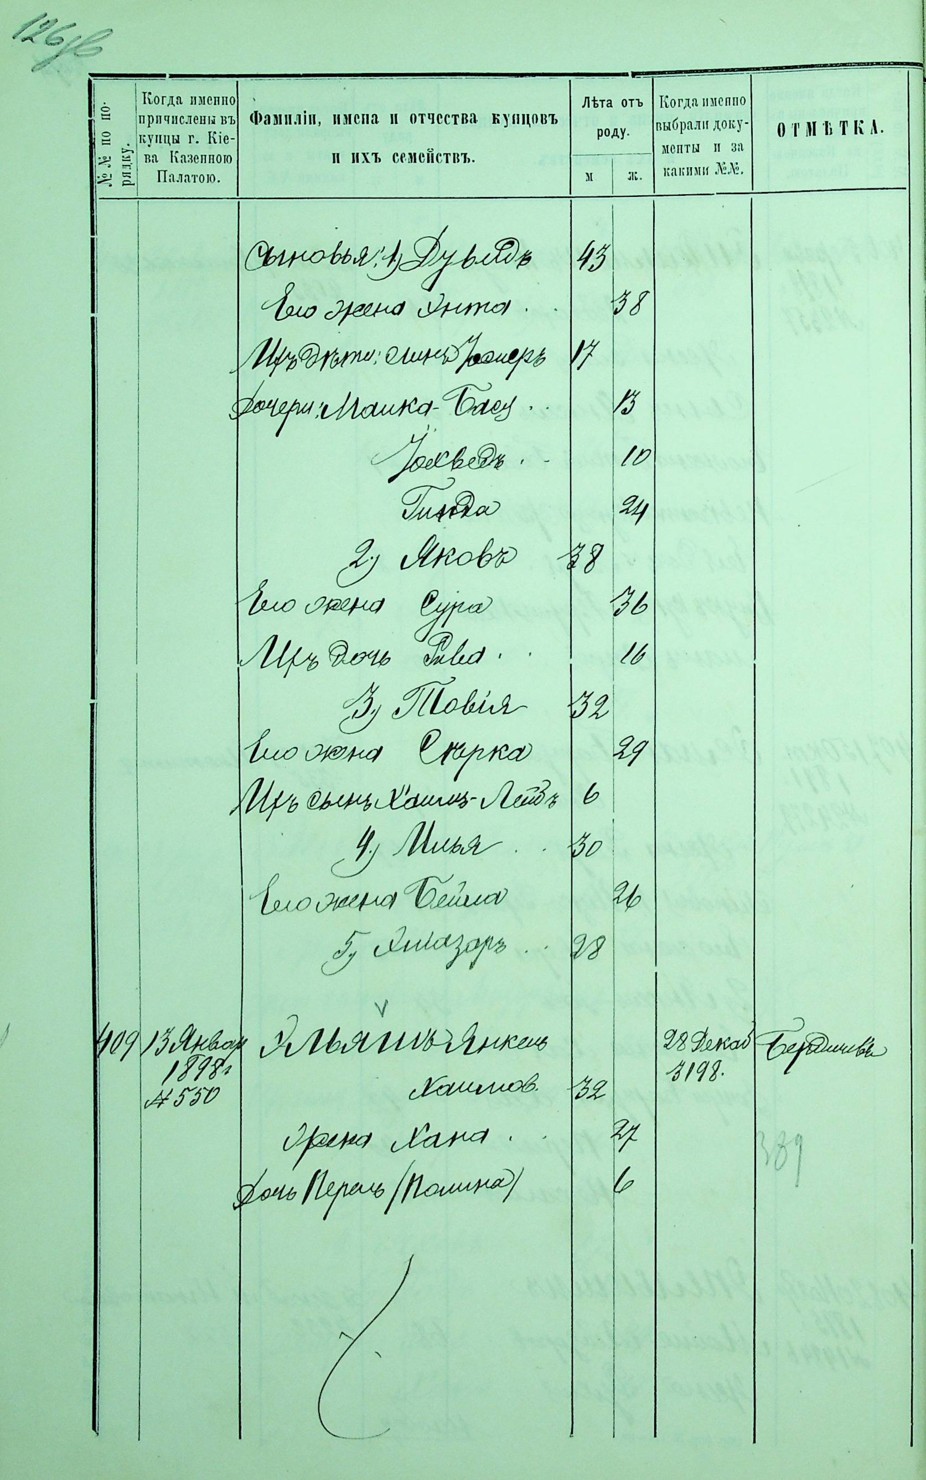 126 об
№№ по порядку.
Когда именно
причислены въ
купцы г. Кіе-
ва Казенною
Палатою.
Фамиліи, имена и отчества купцовъ
и ихъ семействъ.
Лѣта отъ
роду.
м ж.
Когда именно
выбрали доку-
менты и за
какими №№.
ОТМѢТКА.
Сыновья: 1) Дувидъ 43
Его жена Хита 38
Ихъ дѣти: сынъ 17
Дочери: Малка-Бася 13
Іохведъ 10
Гинда 24
2) Яковъ 38
Его жена Сура 36
Ихъ дочь Рива 16
3) Товія 32
Его жена Сѣрка 29
Ихъ сынъ Хаимъ-Лейбъ 6
4) Илья 30
Его жена Бейла 26
5) 28
409 13 Январ Янкель 28 Декаб Бердичевъ
1898 г 3198.
№ 550 Хаимов. 32
Жена Хана 27
389
Дочь Перель (Полина) 6